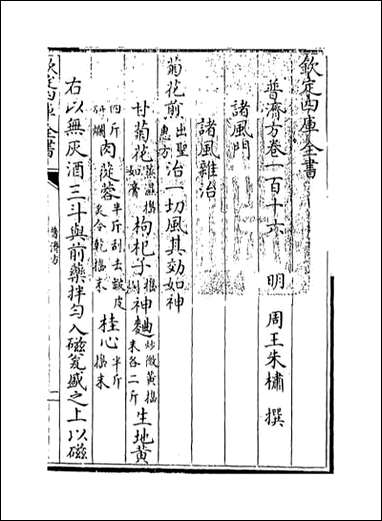 欽定四庫全書
普濟方卷一百十六
明 周王朱橚 撰
諸風門
諸風雜治
菊花煎出聖惠方治一切風其効如神
甘菊花蒸溫搗如膏枸杞子搗神麯炒微黃搗末各二斤生地黄
四斤研爛肉蓯蓉半斤刮去皴皮炙令乾搗末桂心半斤搗末
右以無灰酒三斗與前藥拌勻入磁甕盛之上以磁
欽定四庫全書
普濟方